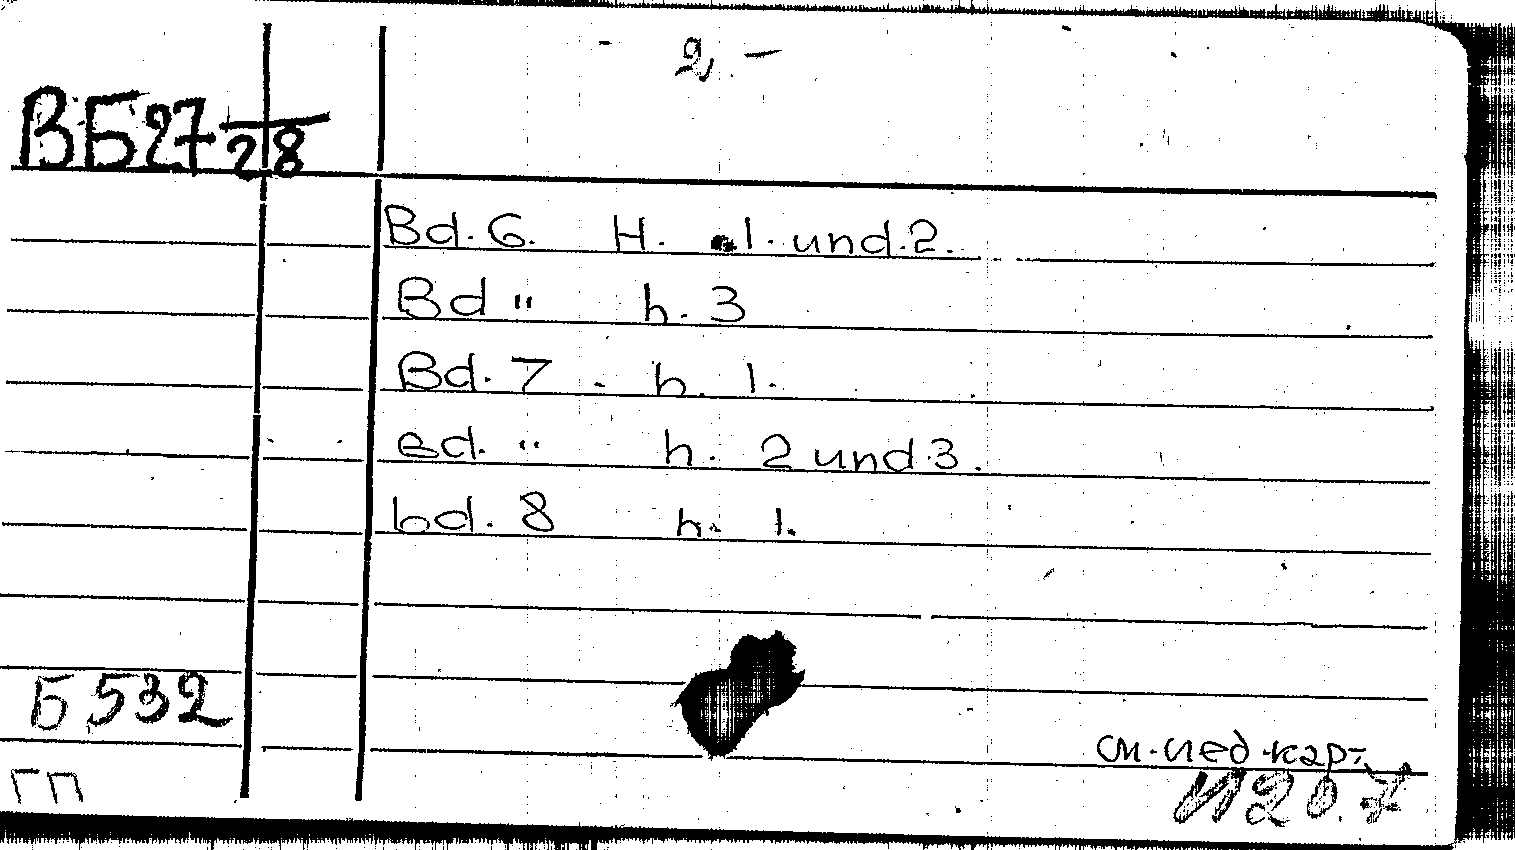 - 2 -
ВБ27/28
Bd. 6. H. 1. und. 2.
Bd " h. 3
Bd. 7 - h. 1.
Bd. " h. 2 und 3.
bd. 8 h. 1.
Б 532
см. след. кар-
ГП